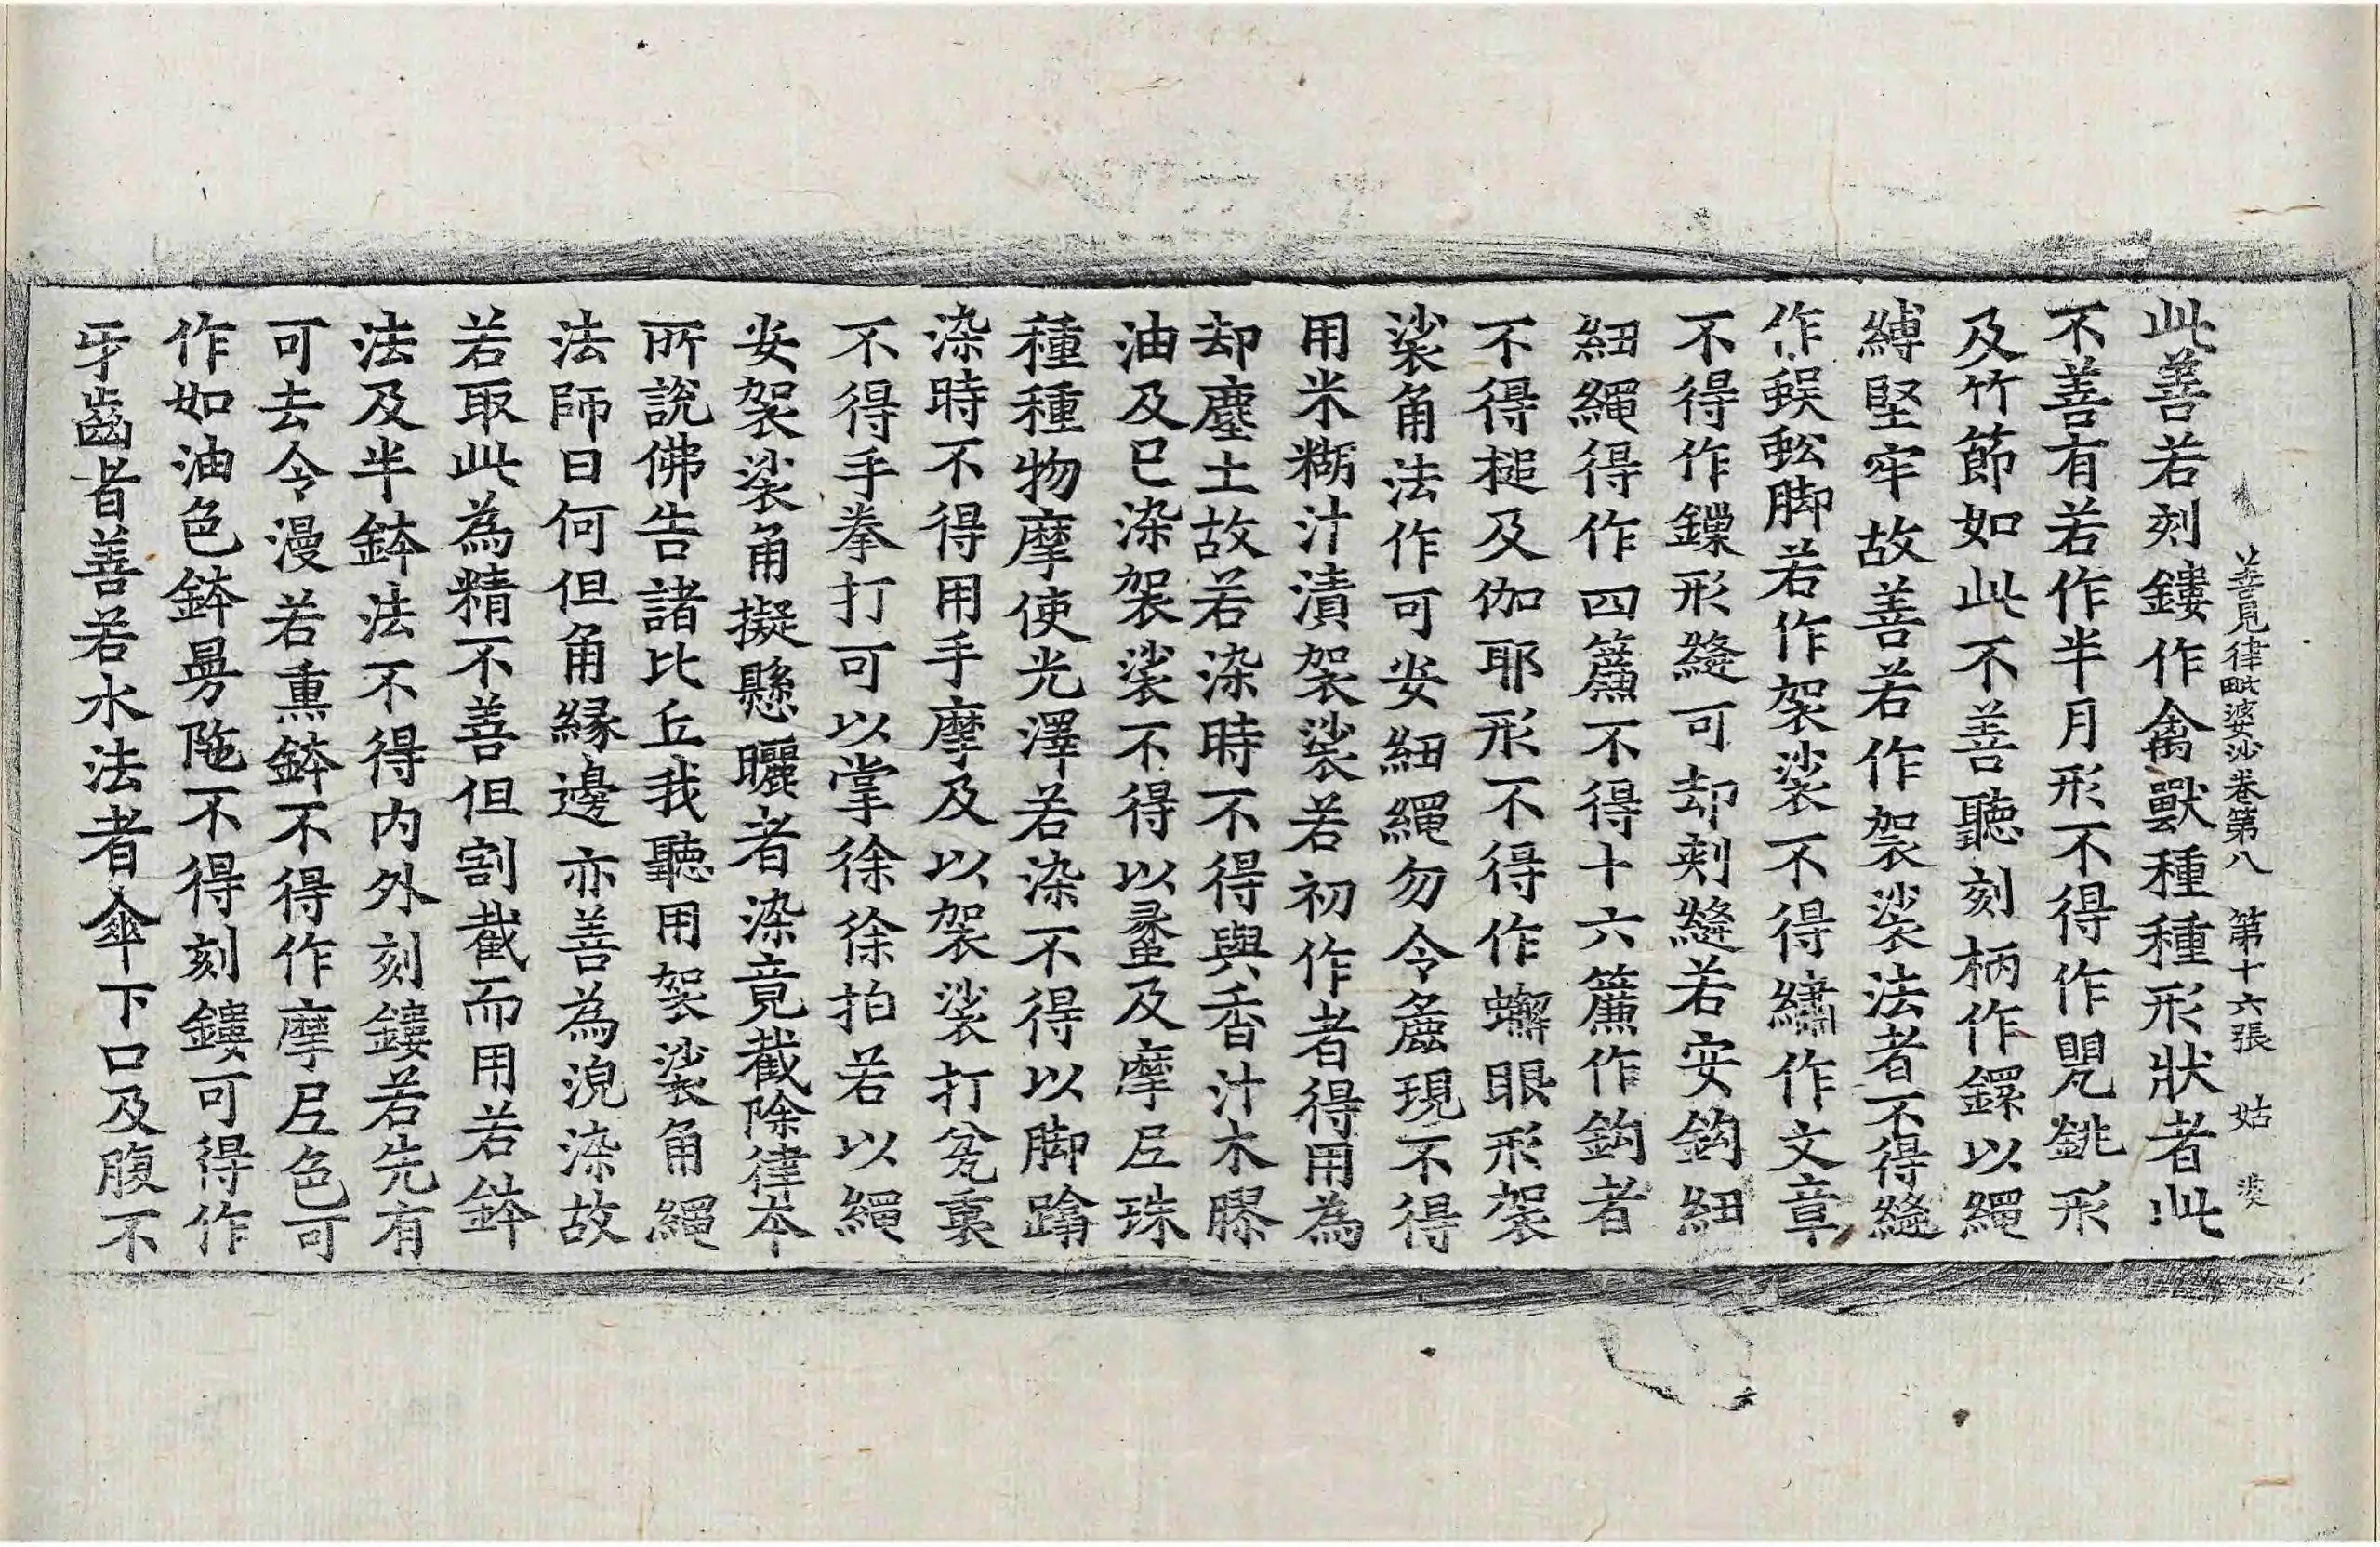 善見律毗婆沙卷第八 第十六張 姑
此善若刻鏤作禽獸種種形狀者此
不善有若作半月形不得作兕銚形
及竹節如此不善聽刻柄作鏍以繩
縛堅牢故善若作袈裟法者不得縫
作蜈蚣脚若作袈裟不得繡作文章
不得作鏁形縫可却刾縫若安鈎紐
紐繩得作四簾不得十六簾作鈎者
不得槌及伽耶形不得作蠏眼形袈
裟角法作可安紐繩勿令麁現不得
用米糊汁漬袈裟若初作者得用為
却塵土故若染時不得與香汁木膠
油及已染袈裟不得以蜯及摩尼珠
種種物摩使光澤若染不得以脚蹹
染時不得用手摩及以袈裟打瓫裏
不得手拳打可以掌徐徐拍若以繩
安袈裟角擬懸曬者染竟截除律本
所說佛告諸比丘我聽用袈裟角繩
法師曰何但角緣邊亦善為浼染故
若取此為精不善但割截而用若鉢
法及半鉢法不得内外刻鏤若先有
可去令漫若熏鉢不得作摩尼色可
作如油色鉢曼陁不得刻鏤可得作
牙齒者善若水法者傘下口及腹不